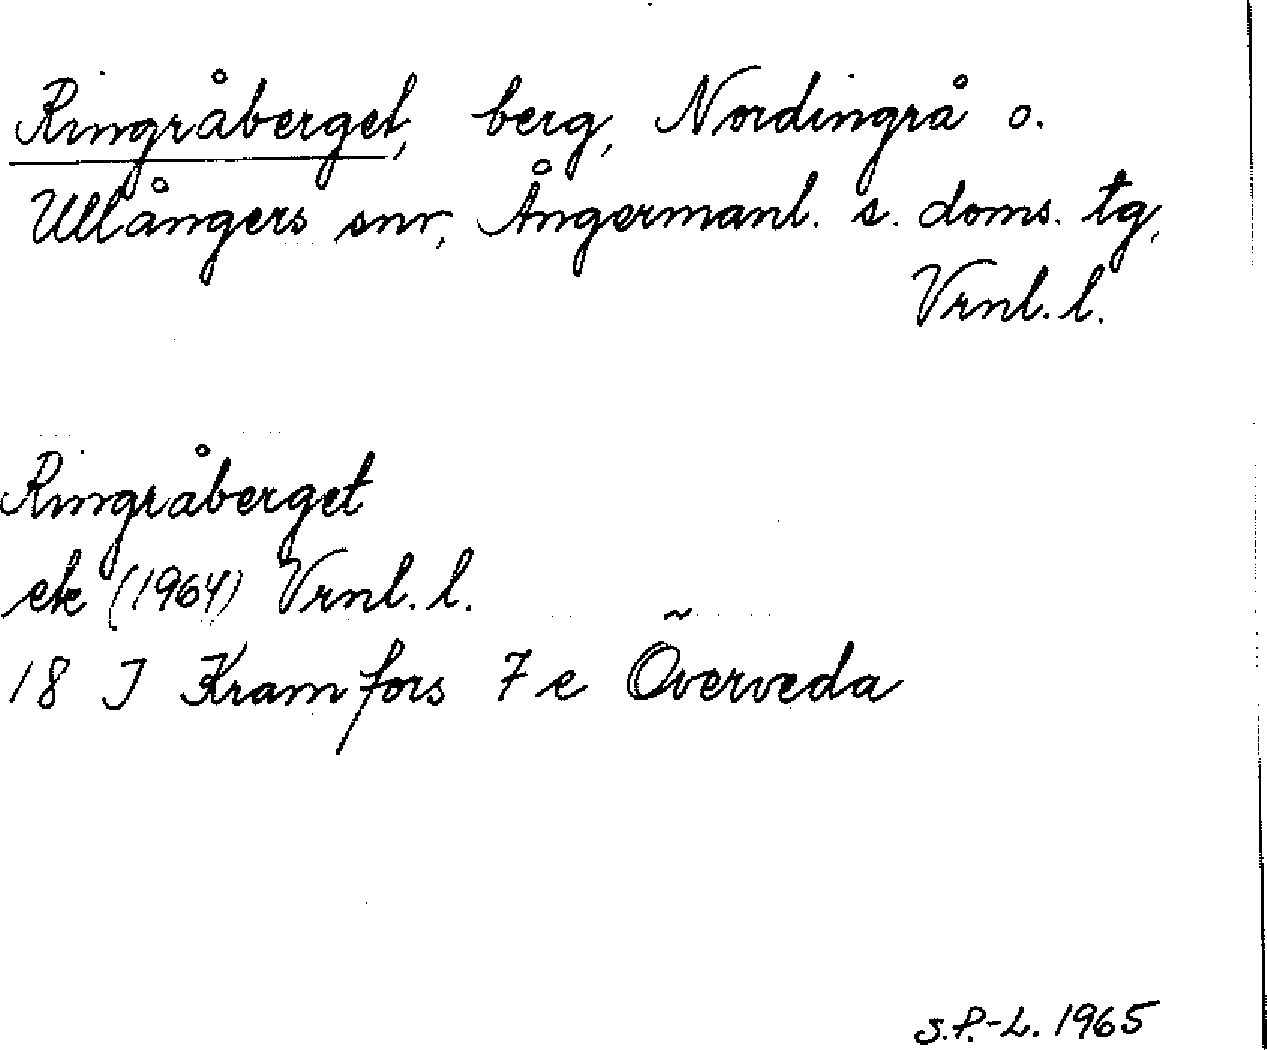 Ringråberget, berg, Nordingrå o.
Ullångers snr, Ångermanl. s. doms. tg,
Vrnl. l.
Ringråberget
ek (1964) Vrnl. l.
18 J Kramfors 7 e Överveda
S.P.-L. 1965